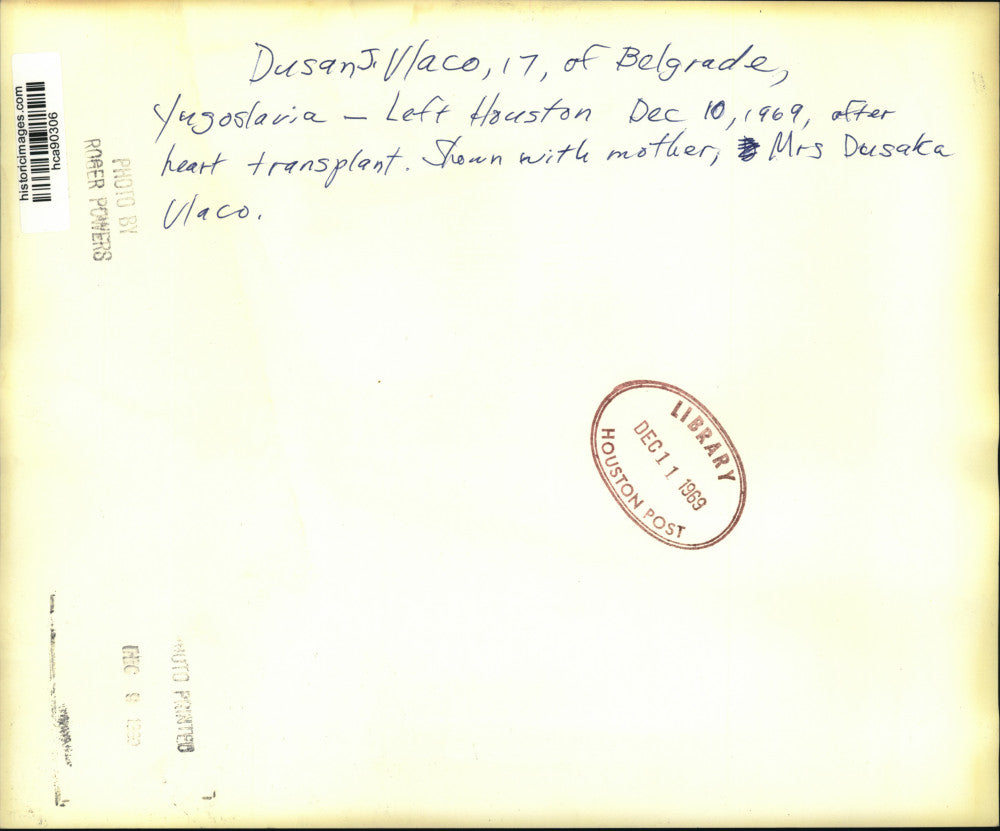 Dusan J. Vlaco, 17, of Belgrade,
Yugoslavia – Left Houston Dec 10, 1969, after
heart transplant. Shown with mother, Mrs Dusaka
Vlaco.
historicimages.com
hca90306
PHOTO BY
ROGER POWERS
LIBRARY
DEC 11 1969
HOUSTON POST
DEC 9